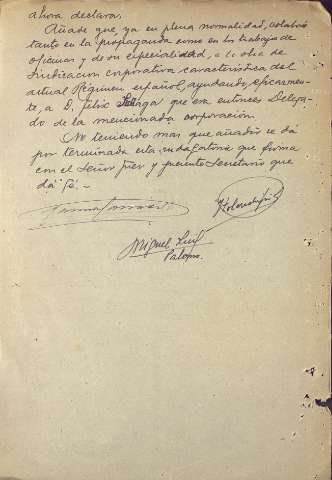 ahora declara.
Añade que ya en plena normalidad, colaboró
tanto en la propaganda como en los trabajos de
oficinas y de su especialidad, a la obra de
Sindicacion corporativa caracteristica del
actual Régimen español, ayudando, eficazmen-
te, a D. Julio que era entonces Delega-
do de la mencionada corporación.
No teniendo mas que añadir se dá
por terminada esta indagatoria que firma
con el Señor Juez y presente Secretario que
dá fé.-
Miguel Luis
Palomo